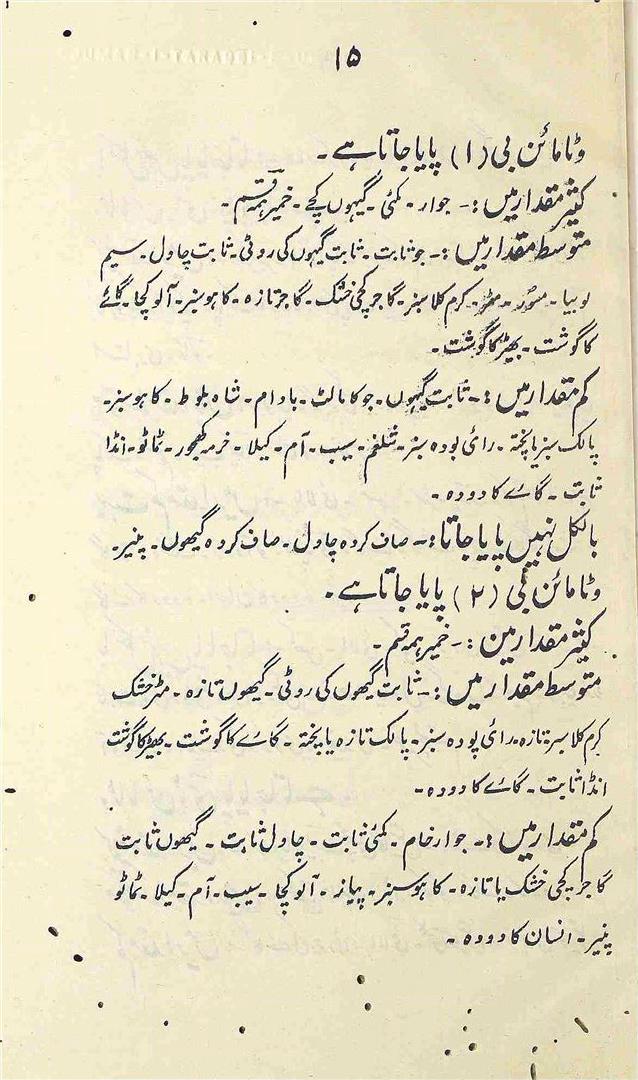 ۱۵
وٹامائن بی (۱) پایا جاتا ہے۔
کثیر مقدار میں :- جوار - مکئی - گیہوں کچے - خمیر ہمہ قسم۔
متوسط مقدار میں :- جو ثابت - ثابت گیہوں کی روٹی - ثابت چاول - سیم
لوبیا - مسور - مٹر - کرم کلا سبز - گاجر کچی خشک - گاجر تازہ - کاہو سبز - آلو کچا - گائے
کا گوشت - بھیڑ کا گوشت۔
کم مقدار میں :- ثابت گیہوں - جو کا مالٹ - بادام - شاہ بلوط - کاہو سبز -
پالک سبز یا پختہ - رائی پودہ سبز - شلغم - سیب - آم - کیلا - خرمہ کھجور - ٹماٹو - انڈا
ثابت - گائے کا دودہ -
بالکل نہیں پایا جاتا :- صاف کردہ چاول - صاف کردہ گیھوں - پنیر -
وٹامائن بی (۲) پایا جاتا ہے -
کثیر مقدار مین :- خمیر ہمہ قسم -
متوسط مقدار میں :- ثابت گیھوں کی روٹی - گیھوں تازہ - مٹر خشک
کرم کلا سبز تازہ - رائی پودہ سبز - پالک تازہ یا پختہ - گائے کا گوشت - بھیڑ کا گوشت
انڈا ثابت - گائے کا دودہ -
کم مقدار میں :- جوار خام - مکئی ثابت - چاول ثابت - گیھوں ثابت
گاجر کچی خشک یا تازہ - کاہو سبز - پیاز - آلو کچا - سیب - آم - کیلا - ٹماٹو
پنیر - انسان کا دودہ -